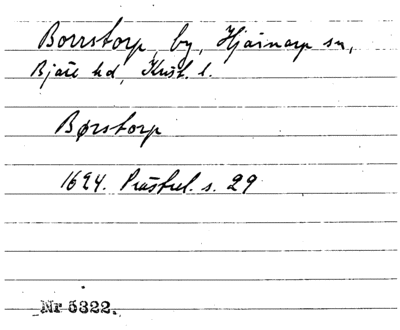 Borrstorp, by, Hjärnarp sn,
Bjäre hd, Krist. l.
Børstorp
1624. Prästrel. s. 29
Nr 5322.